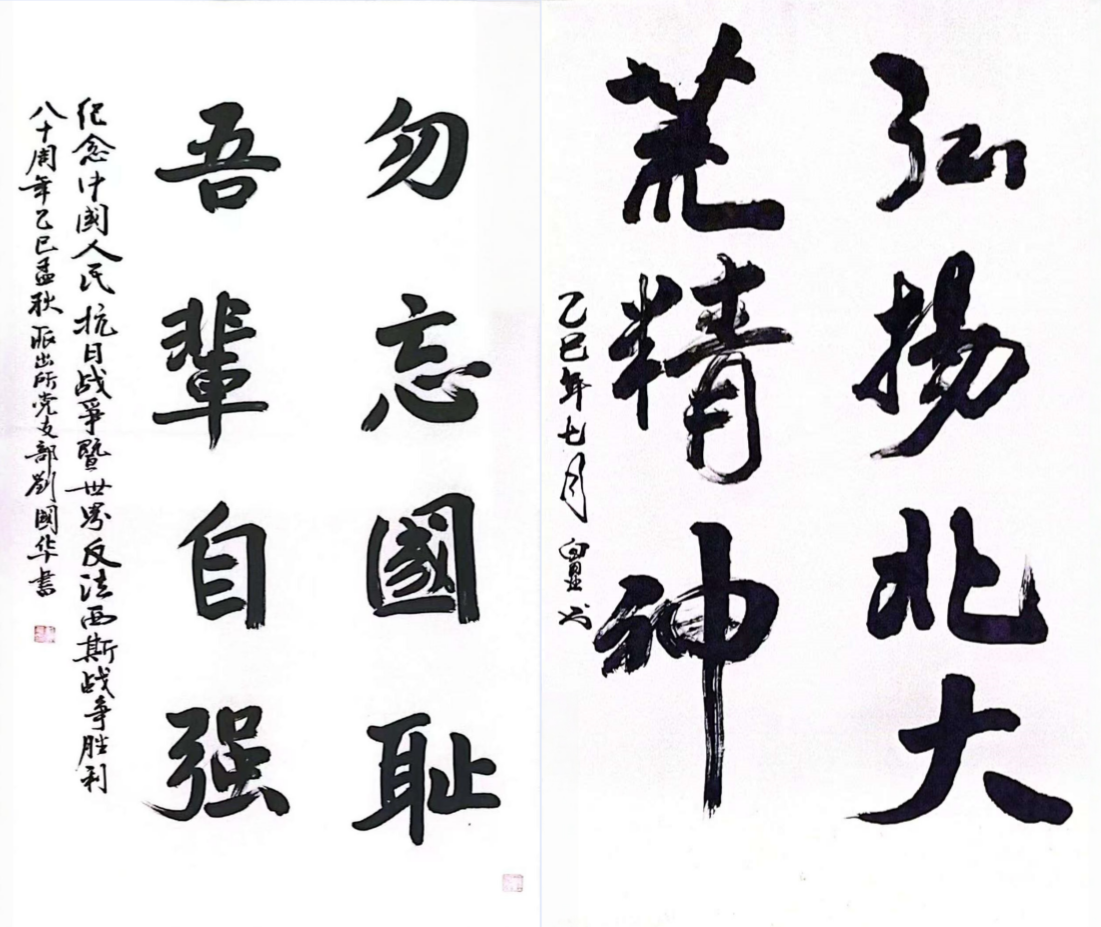 勿忘國耻
吾輩自强
纪念中國人民抗日战爭暨世界反法西斯战争胜利
八十周年乙巳孟秋派出所党支部劉國华書
弘揚北大
荒精神
乙巳年七月